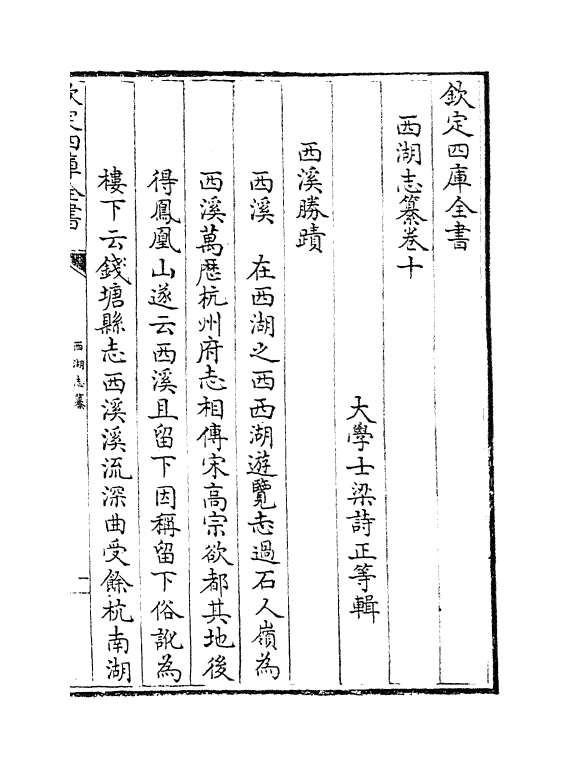 欽定四庫全書
西湖志纂卷十
大學士梁詩正等輯
西溪勝蹟
西溪　在西湖之西西湖遊覽志過石人嶺為
西溪萬厯杭州府志相傳宋髙宗欲都其地後
得鳳凰山遂云西溪且留下因稱留下俗訛為
樓下云錢塘縣志西溪溪流深曲受餘杭南湖
欽定四庫全書
西湖志纂
一